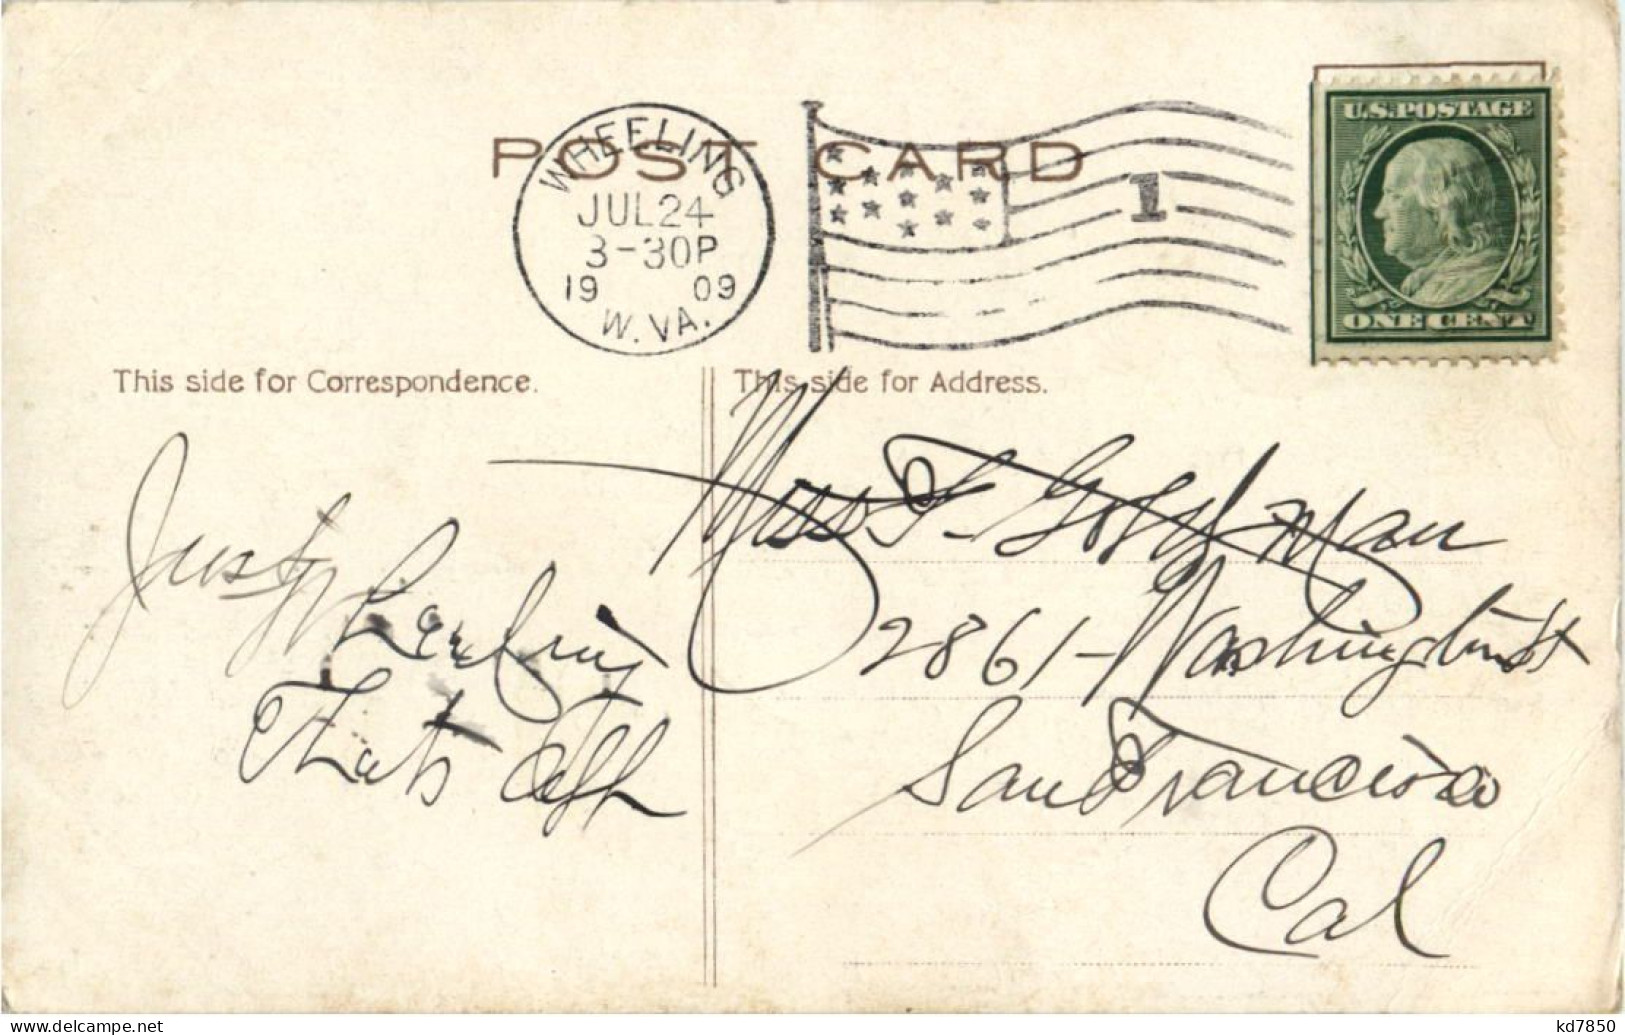 POST CARD
WHEELING
JUL 24
3-30P
19 09
W. VA.
1
U.S. POSTAGE
ONE CENT
This side for Correspondence.
This side for Address.
Just
Thats all
Miss F- Goldman
2861-Washington St
San Francisco
Cal
kd7850